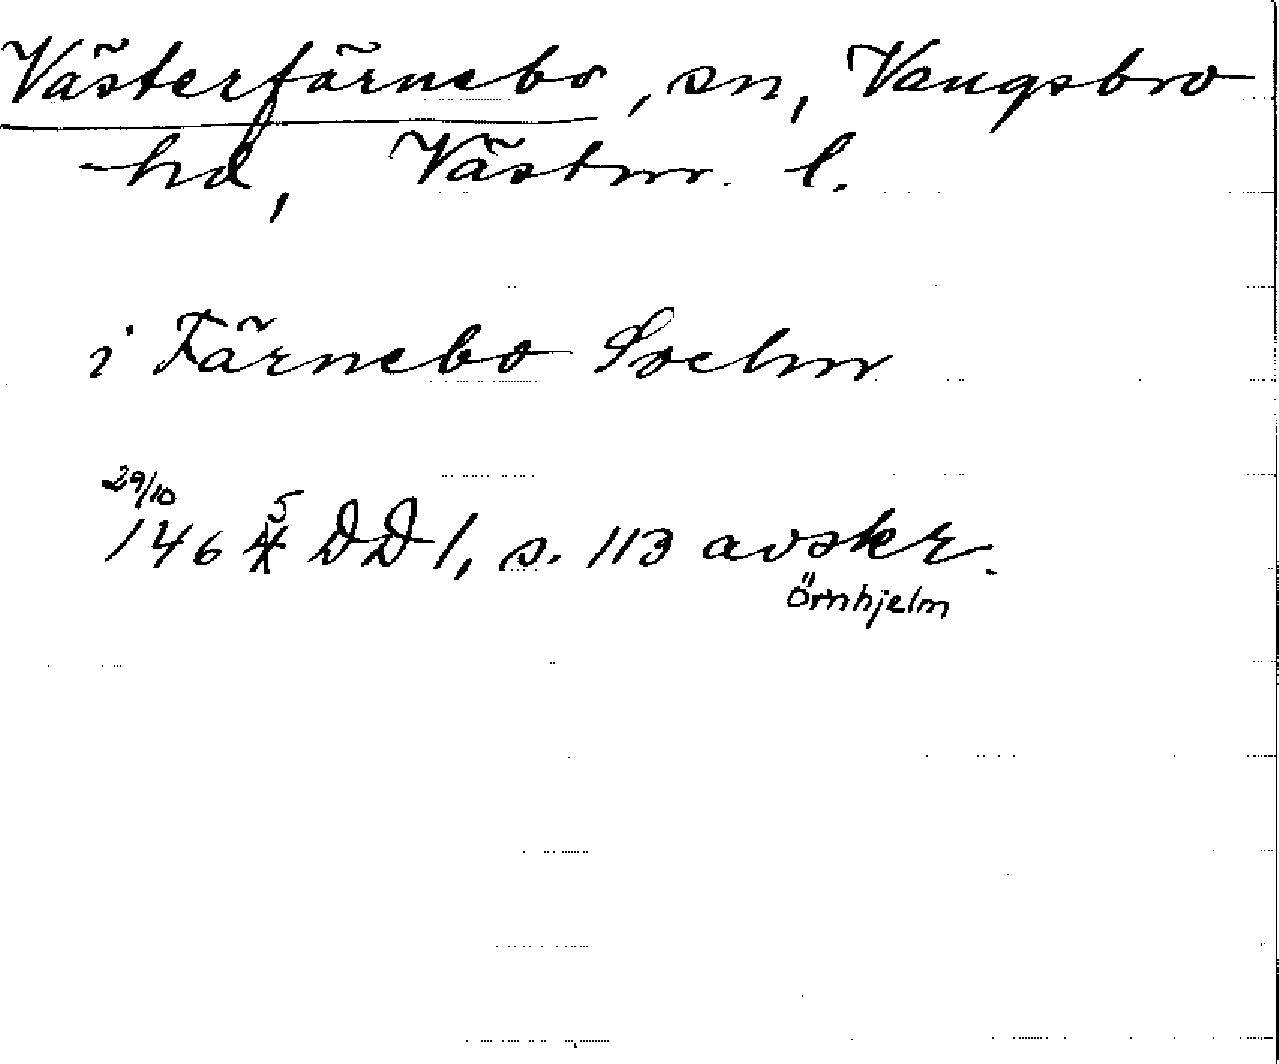 Västerfärnebo, sn, Vangsbro
hd, Västm. l.
i Färnebo Sochn
29/10
1465 DD 1, s. 113 avskr.
Örnhjelm